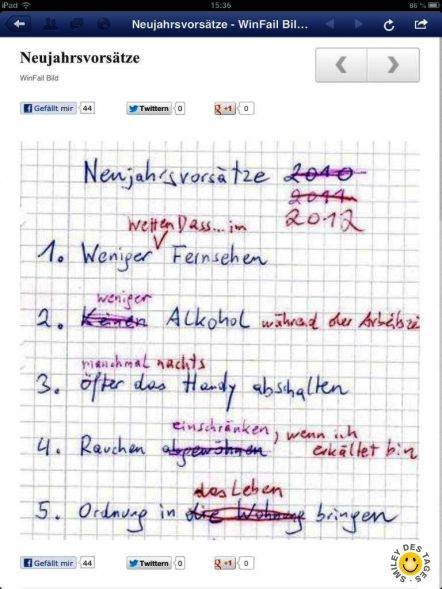 iPad 15:36 86 %
Neujahrsvorsätze - WinFail Bil...
Neujahrsvorsätze
WinFail Bild
Gefällt mir 44 Twittern 0 +1 0
Neujahrsvorsätze 2010
2011
2012
Wetten Dass... im
1. Weniger Fernsehen
weniger
2. Keinen Alkohol während der Arbeitsze
manchmal nachts
3. öfter das Handy abschalten
einschränken, wenn ich
4. Rauchen abgewöhnen erkältet bin
das Leben
5. Ordnung in die Wohnung bringen
Gefällt mir 44 Twittern 0 +1 0
SMILEY DES TAGES